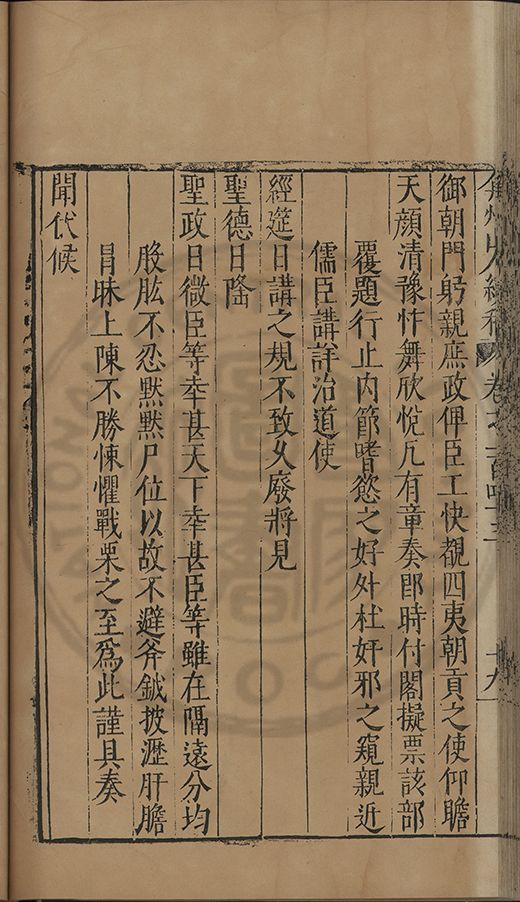 弇州山人續稿 卷之一百四十三 十九
御朝門躬親庶政俾臣工快覩四夷朝貢之使仰瞻
天顔清豫忭舞欣悅凡有章奏即時付閣擬票該部
覆題行止内節嗜慾之好外杜奸邪之窺親近
儒臣講詳治道使
經筵日講之規不致久廢將見
聖德日隆
聖政日微臣等幸甚天下幸甚臣等雖在隔遠分均
股肱不忍默默尸位以故不避斧鉞披瀝肝膽
冒昧上陳不勝悚懼戰栗之至爲此謹具奏
聞代候